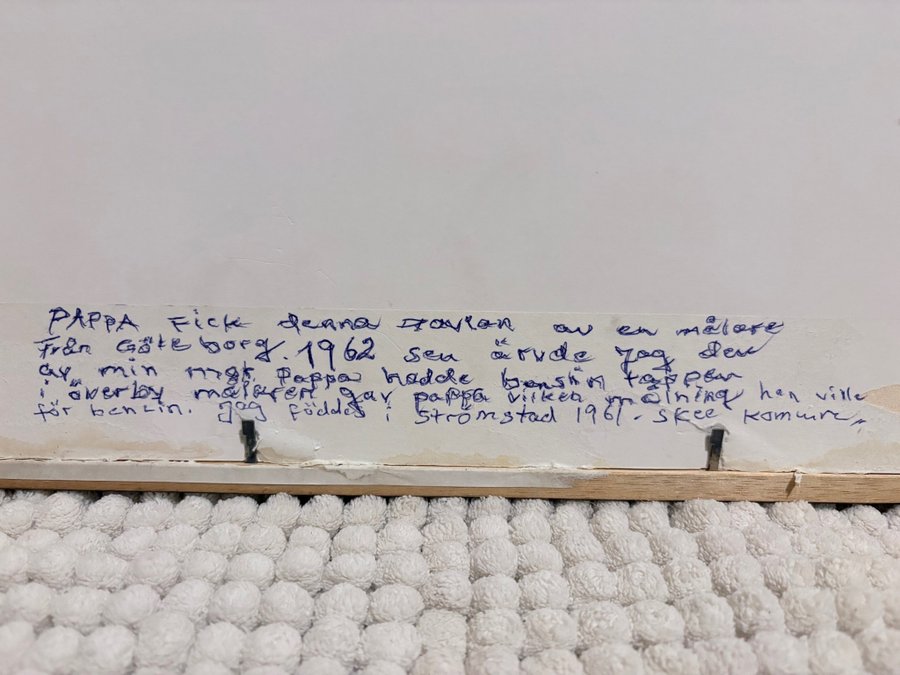 PAPPA Fick denna Tavlan av en målare
från Göteborg. 1962 sen ärvde jag den
av min mor. Pappa hadde bensin tappen
i överby målaren gav pappa vilken målning han ville
för benzin. Jag föddes i Strömstad 1961. Skee